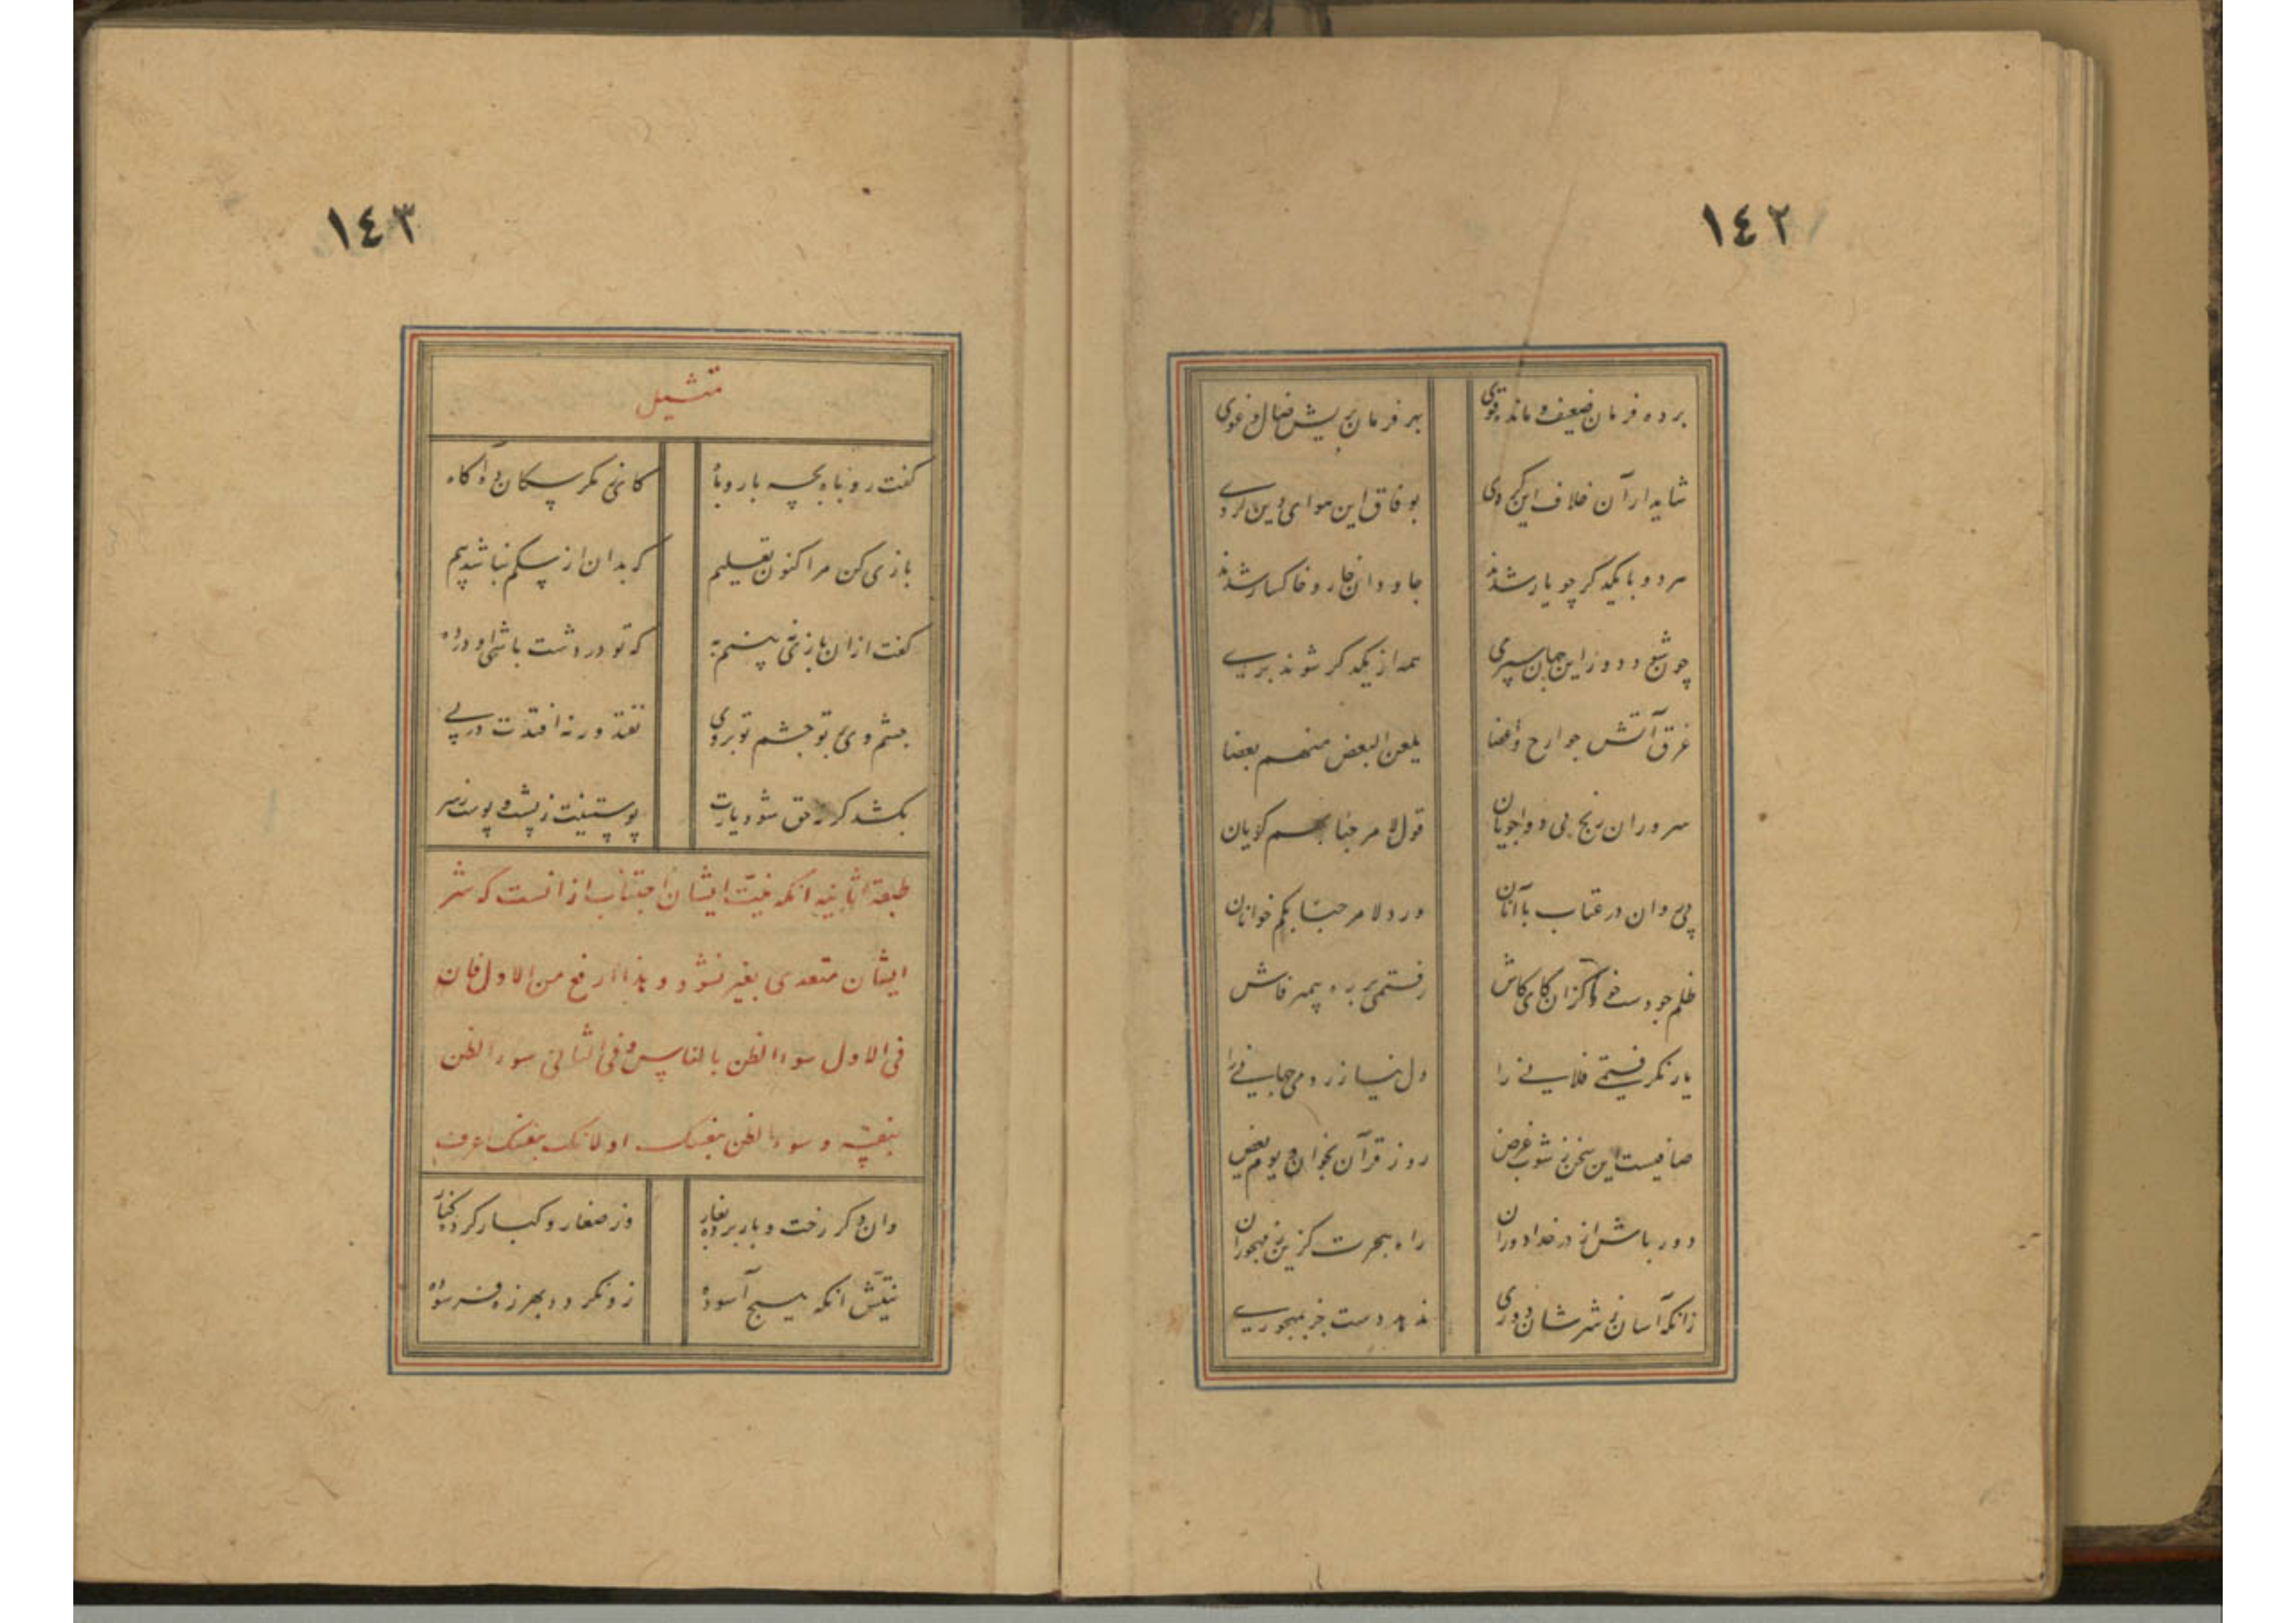 ١٤٢
برده فرمان ضعیف و مانده قوی
بهر فرمان بریش ضال و غوی
شاید ار آن خلاف این کردی
بوفاق این هوای دین کردی
هر دو با یکدگر چو یار شدند
جاودان خار و خاکسار شدند
چون شود دور این جهان سپری
همه از یکدگر شوند بری
غرق آتش جوارح و اعضا
یلعن البعض منهم بعضا
سروران رنج بی دوا جویان
قول لا مرحبا بهم گویان
پی روان در عتاب با آنان
ورد لا مرحبا بکم خوانان
ظلم جو دست خود گزان کای کاش
رفتمی بر ره پیمبر فاش
یار نگرفتمی فلانی را
دل نیازردمی جهانی را
صافیست این سخن ز شوب غرض
روز قرآن بخوان و یوم یعض
دور باش از در خدا دوران
راه هجرت گزین ز مهجوران
زانکه آسان ز شرشان دوری
ندهد دست جز بمهجوری
١٤٣
تمثیل
گفت روباه بچه با روباه
کای ز مکر سگان ده آگاه
بازیی کن مرا کنون تعلیم
که بدان از سگم نباشد بیم
گفت ازان بازیی نبینم به
که تو در دشت باشی او در ده
چشم وی بر تو چشم تو بر وی
نفتد ورنه افتدت در پی
بکشد گر نه حق شود یارت
پوستینت ز پشت و پوست ز سر
طبقه الثانیه آنکه نیت ایشان اجتناب از آنست که شر
ایشان متعدی بغیر نشود و هذا ارفع من الاول فان
فی الاول سوء الظن بالناس و فی الثانی سوء الظن
بنفسه و سوء الظن بنفسک اولی لانک بنفسک اعرف
وان دگر رخت و بار برده بغار
وز صغار و کبار کرده کنار
نیتش آنکه هیچ آسوده
زو نگردد بهرزه فرسوده